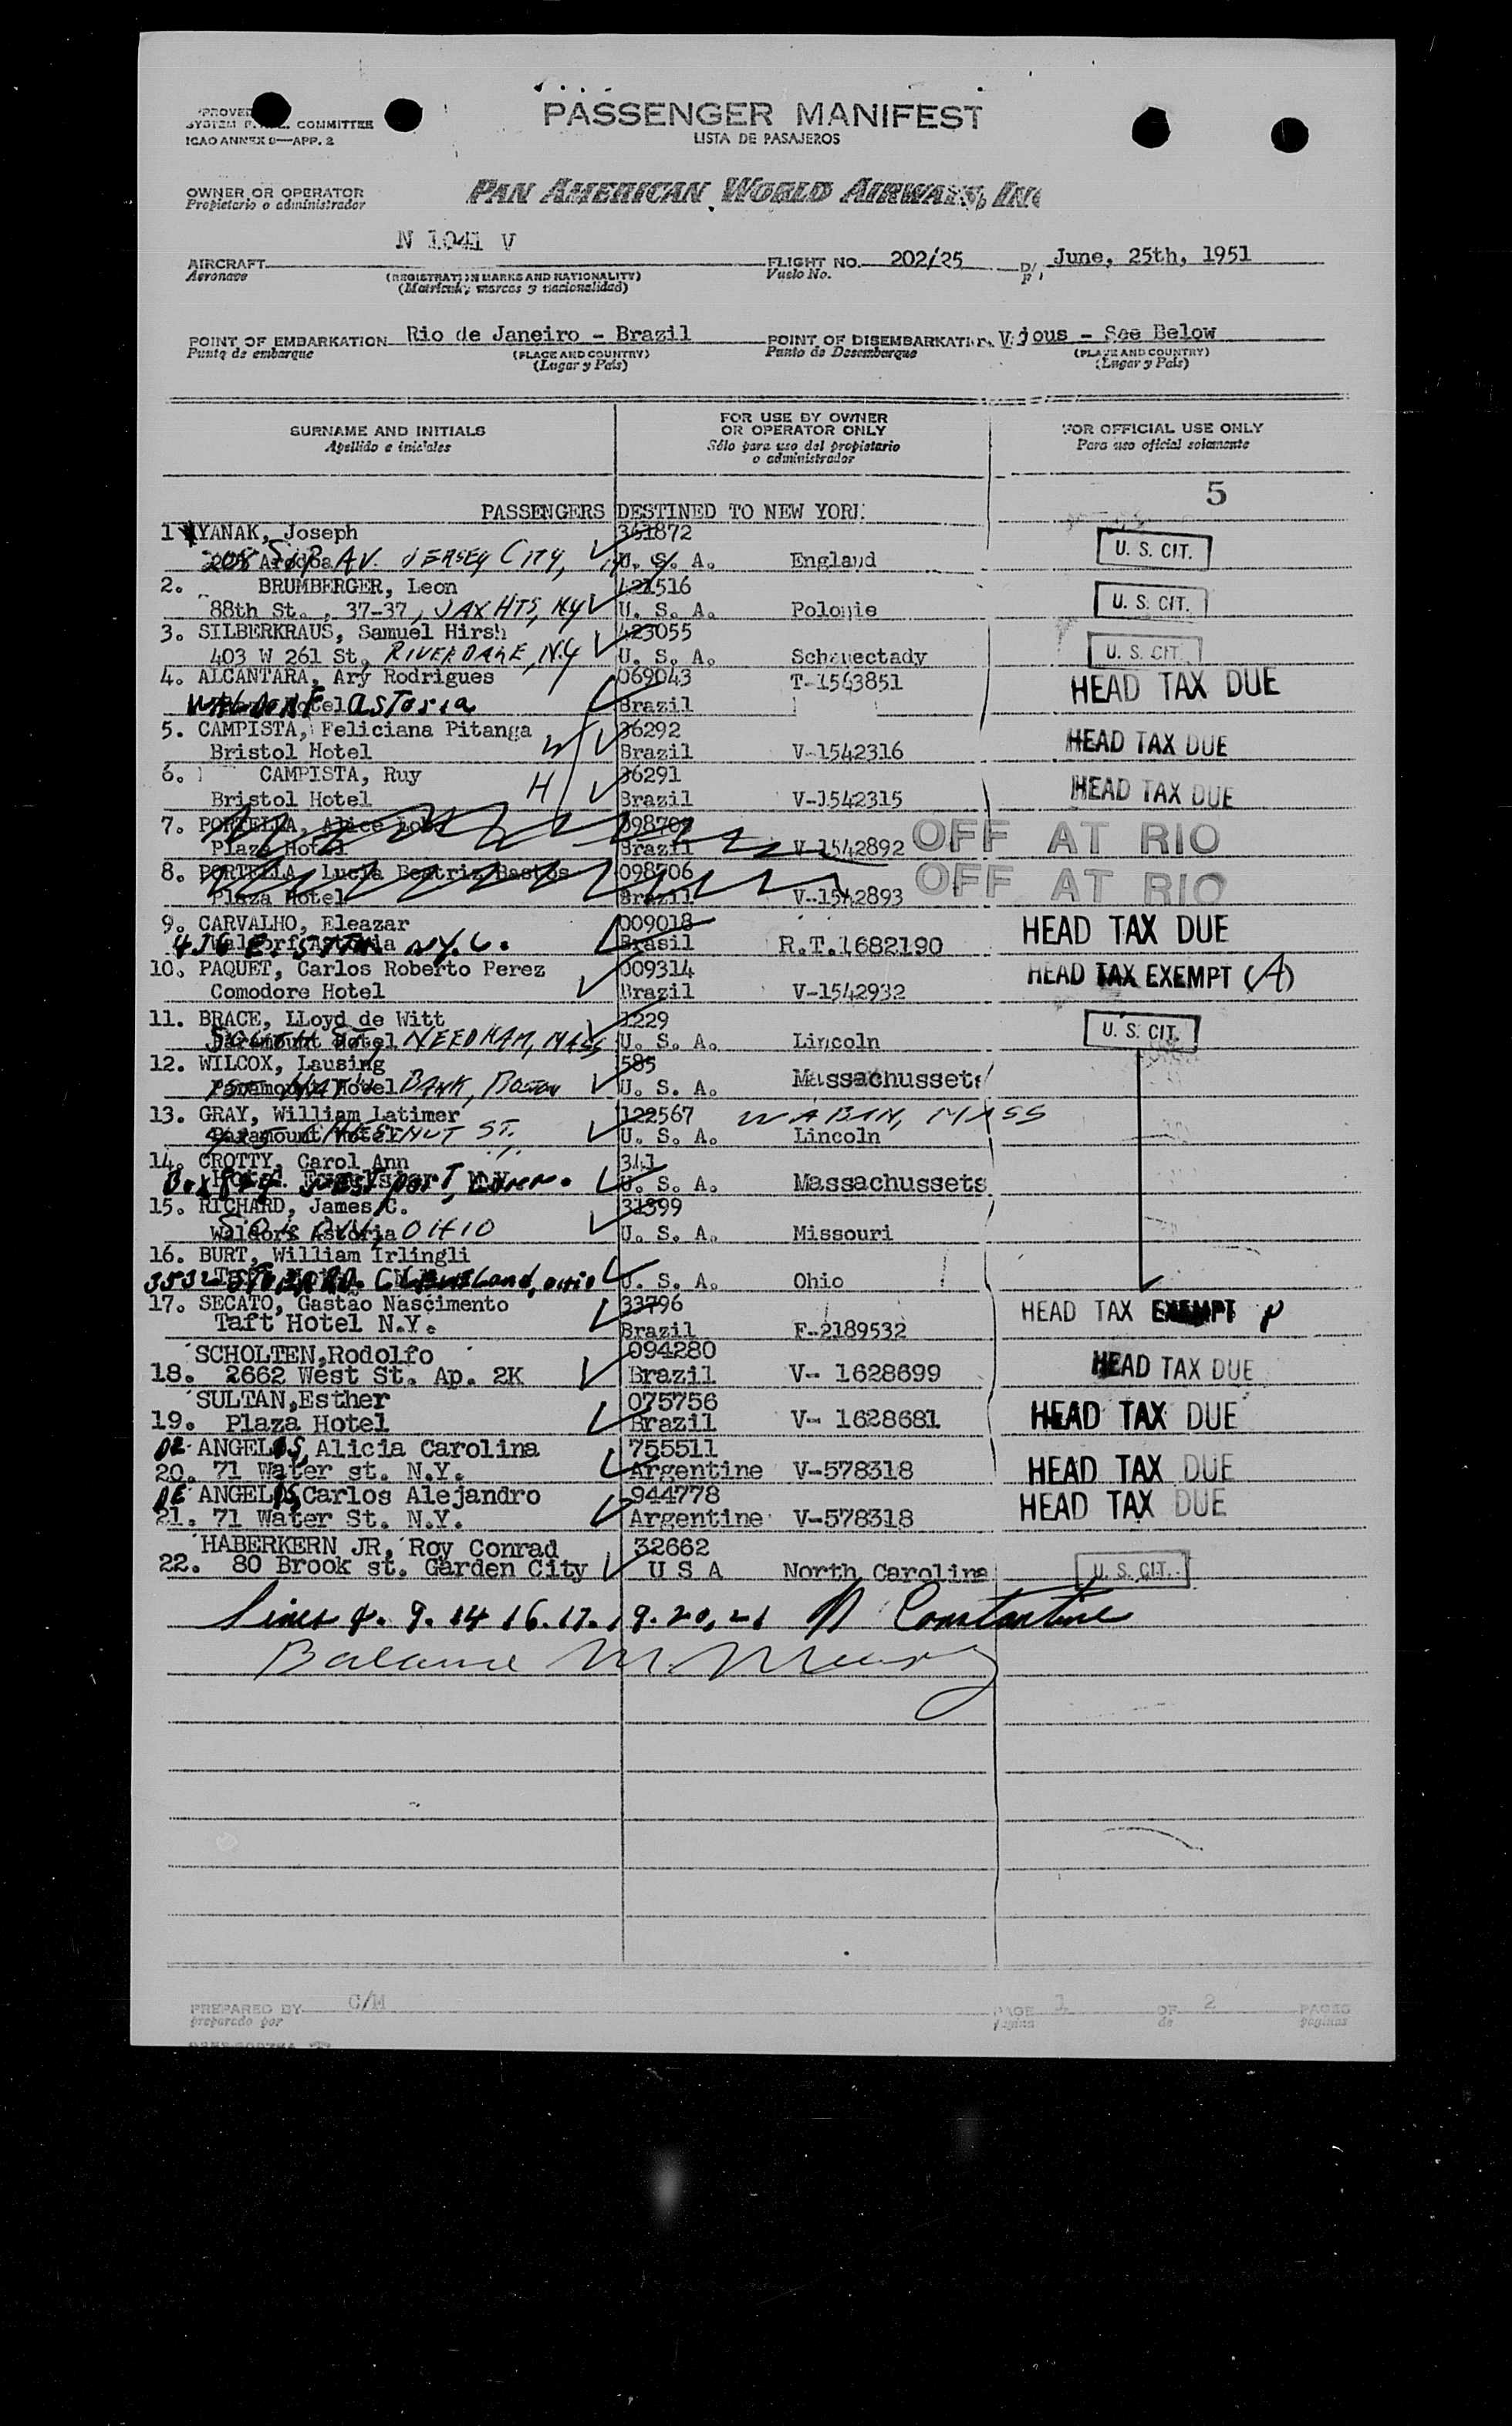 COMMITTEE
ICAO ANNEX 9—APP. 2
PASSENGER MANIFEST
LISTA DE PASAJEROS
OWNER OR OPERATOR
Propietario o administrador
PAN AMERICAN WORLD AIRWAYS, INC
AIRCRAFT N 1041 V
Aeronave
(REGISTRATION MARKS AND NATIONALITY)
(Matricula, marcas y nacionalidad)
FLIGHT NO. 202/25
Vuelo No.
June, 25th, 1951
POINT OF EMBARKATION Rio de Janeiro - Brazil
Punto de embarque
(PLACE AND COUNTRY)
(Lugar y País)
POINT OF DISEMBARKATION See Below
Punto de Desembarque
(PLACE AND COUNTRY)
(Lugar y País)
SURNAME AND INITIALS
Apellido e iniciales
FOR USE BY OWNER
OR OPERATOR ONLY
Sólo para uso del propietario
o administrador
FOR OFFICIAL USE ONLY
Para uso oficial solamente
5
PASSENGERS DESTINED TO NEW YORK
1 YANAK, Joseph 361872
AV. JERSEY CITY, U. S. A. England U. S. CIT.
2. BRUMBERGER, Leon 421516
88th St., 37-37, JAX HTS, NY U. S. A. Polonie U. S. CIT.
3. SILBERKRAUS, Samuel Hirsh 423055
403 W 261 St, RIVERDALE, N.Y U. S. A. Schenectady U. S. CIT.
4. ALCANTARA, Ary Rodrigues 069043 T-1543851 HEAD TAX DUE
WALDORF ASTORIA Brazil
5. CAMPISTA, Feliciana Pitanga W 36292 HEAD TAX DUE
Bristol Hotel Brazil V-1542316
6. CAMPISTA, Ruy H 36291 HEAD TAX DUE
Bristol Hotel Brazil V-1542315
7. PORTELLA, Alice OFF AT RIO
Plaza Hotel Brazil V-1542892
8. PORTELLA, Lucia Beatriz Bastos 098706 OFF AT RIO
Plaza Hotel Brazil V-1542893
9. CARVALHO, Eleazar 009018 HEAD TAX DUE
N.Y.C. Brasil R.T.1682190
10. PAQUET, Carlos Roberto Perez 009314 HEAD TAX EXEMPT (A)
Comodore Hotel Brazil V-1542932
11. BRACE, LLoyd de Witt 1229 U. S. CIT.
Paramount Hotel NEEDHAM, MASS U. S. A. Lincoln
12. WILCOX, Lausing 585
Paramount Hotel BANK, Boston U. S. A. Massachussets
13. GRAY, William Latimer 122567 WABAN, MASS
Paramount Hotel CHESTNUT ST. U. S. A. Lincoln
14. CROTTY, Carol Ann 341
Westport, Conn. U. S. A. Massachussets
15. RICHARD, James C. 31899
Waldorf Astoria OHIO U. S. A. Missouri
16. BURT, William Irlingli
Cleveland, ohio U. S. A. Ohio
17. SECATO, Gastao Nascimento 33796 HEAD TAX EXEMPT
Taft Hotel N.Y. Brazil F-2189532
SCHOLTEN,Rodolfo 094280 HEAD TAX DUE
18. 2662 West St. Ap. 2K Brazil V- 1628699
SULTAN,Esther 075756 HEAD TAX DUE
19. Plaza Hotel Brazil V- 1628681
DE ANGELIS, Alicia Carolina 755511 HEAD TAX DUE
20. 71 Water st. N.Y. Argentine V-578318
DE ANGELIS, Carlos Alejandro 944778 HEAD TAX DUE
21. 71 Water St. N.Y. Argentine V-578318
HABERKERN JR, Roy Conrad 32662
22. 80 Brook st. Garden City U S A North Carolina U. S. CIT.
Lines 4. 9. 14 16. 17. 19. 20, 21 Constantine
Balance M.
PREPARED BY C/M
preparado por
PAGE 1 OF 2 PAGES
página de páginas